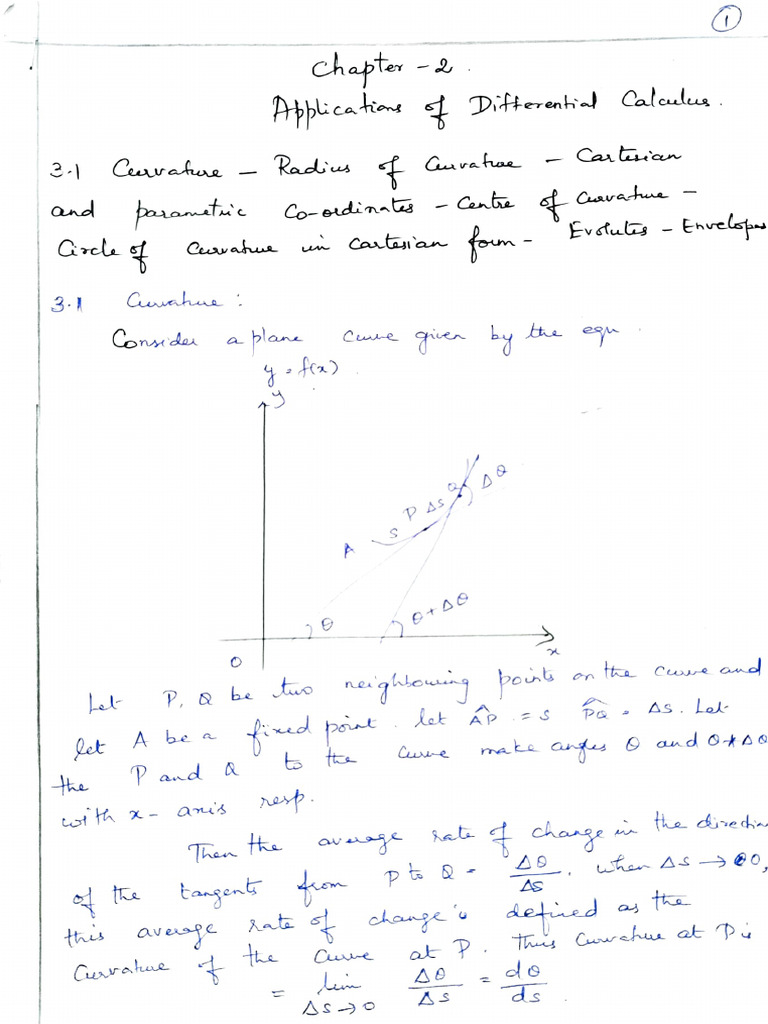 1
Chapter - 2.
Applications of Differential Calculus.
3.1 Curvature - Radius of Curvature - Cartesian
and parametric Co-ordinates - Centre of Curvature -
Circle of curvature in Cartesian form - Evolutes - Envelopes
3.1 Curvature :
Consider a plane curve given by the equ.
y = f(x).
y
A S P Δs Q Δθ
θ θ+Δθ
0 x
Let P, Q be two neighbouring points on the curve and
let A be a fixed point. let A͡P = s P͡Q = Δs. Let
the P and Q to the curve make angles θ and θ+Δθ
with x-axis resp.
Then the average rate of change in the direction
of the tangents from P to Q = Δθ/Δs. when Δs → 0,
this average rate of change is defined as the
Curvature of the curve at P. Thus Curvature at P is
= lim Δs→0 Δθ/Δs = dθ/ds.